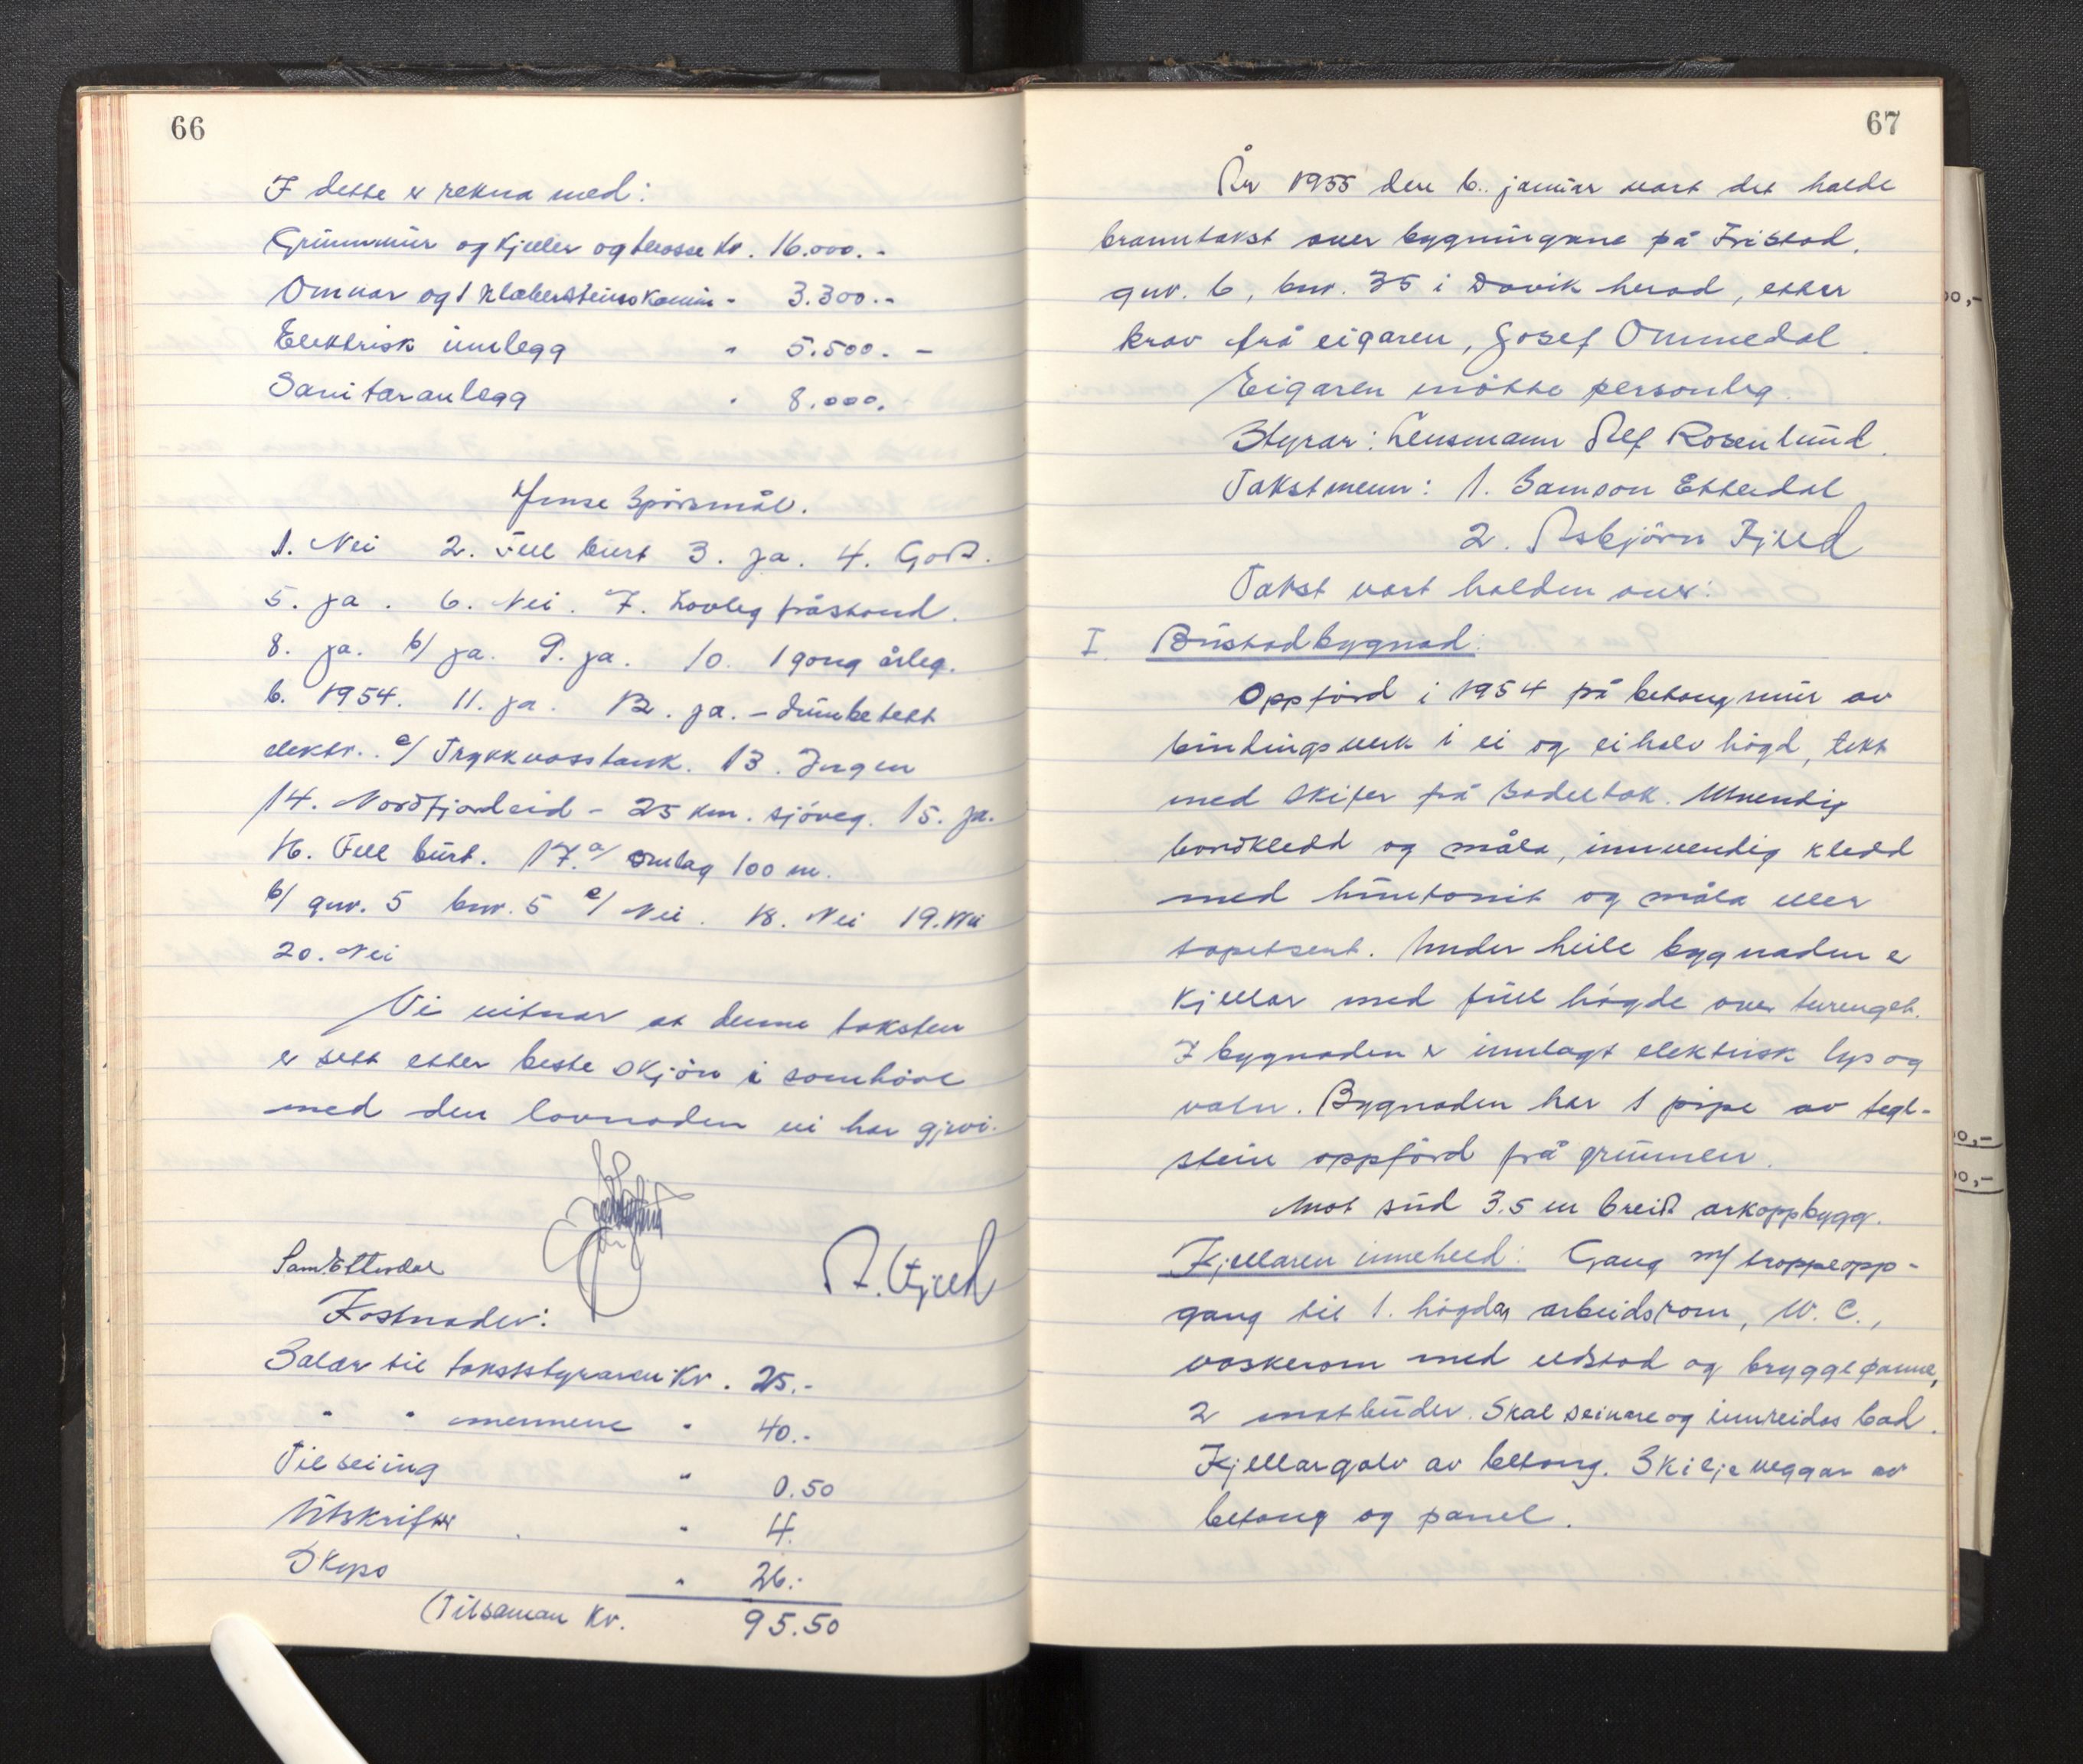 66
I dette er rekna med:
Grunnmur og kjeller og trosse kr. 16.000.-
Omnar og 1 klebersteinskamin - 3.300.-
Elektrisk innlegg " 5.500.-
Sanitæranlegg " 8.000.
Ymse spörsmål.
1. Nei 2. Fell burt 3. ja. 4. Godt.
5. ja. 6. Nei. 7. Lovleg fråstand.
8. ja. b/ ja. 9. ja. 10. 1 gong årleg.
b. 1954. 11. ja. 12. ja. - dunketett
elektr.. c/ Trykkvasstank. 13. Ingen
14. Nordfjordeid - 25 km. sjöveg. 15. ja.
16. Fell burt. 17. a/ omlag 100 m.
b/ gnr. 5 bnr. 5 c/ Nei. 18. Nei 19. Nei
20. Nei
Vi vitnar at denne taksten
er sett etter beste skjön i samhöve
med den lovnaden vi har gjevi.
Sam. Etterdal
A. Fjeld
Kostnader:
Salær til takststyraren Kr. 25.-
" " mennene " 40.-
Tilseiing " 0.50
Utskrifter " 4.
Skyss " 26.-
(Tilsaman Kr. 95.50
67
År 1955 den 6. januar vart det halde
branntakst over bygningane på Fristad,
gnr. 6, bnr. 35 i Davik herad, etter
krav frå eigaren, Josef Ommedal.
Eigaren mötte personleg.
Styrar: Lensmann Alf Rosenlund.
Takstmenn: 1. Samson Etterdal
2. Asbjörn Fjeld
Takst vart halden over:
I. Bustadbygnad:
Oppförd i 1954 på betongmur av
bindingsverk i ei og ei halv högd, tekt
med skifer på sadeltak. Utvendig
bordkledd og måla, innvendig kledd
med huntonit og måla eller
tapetsert. Under heile bygnaden er
kjellar med full högde over terrenget.
I bygnaden er innlagt elektrisk lys og
vatn. Bygnaden har 1 pipe av tegl-
stein oppförd frå grunnen.
Mot sud 3.5 m breidt arkoppbygg.
Kjellaren inneheld: Gang m/ trappeopp-
gang til 1. högda, arbeidsrom, W.C.,
vaskerom med eldstad og bryggepanne,
2 matbuder. Skal seinare og innreidas bad.
Kjellargolv av betong. Skiljeveggar av
betong og panel.
00,-
00,-
00,-